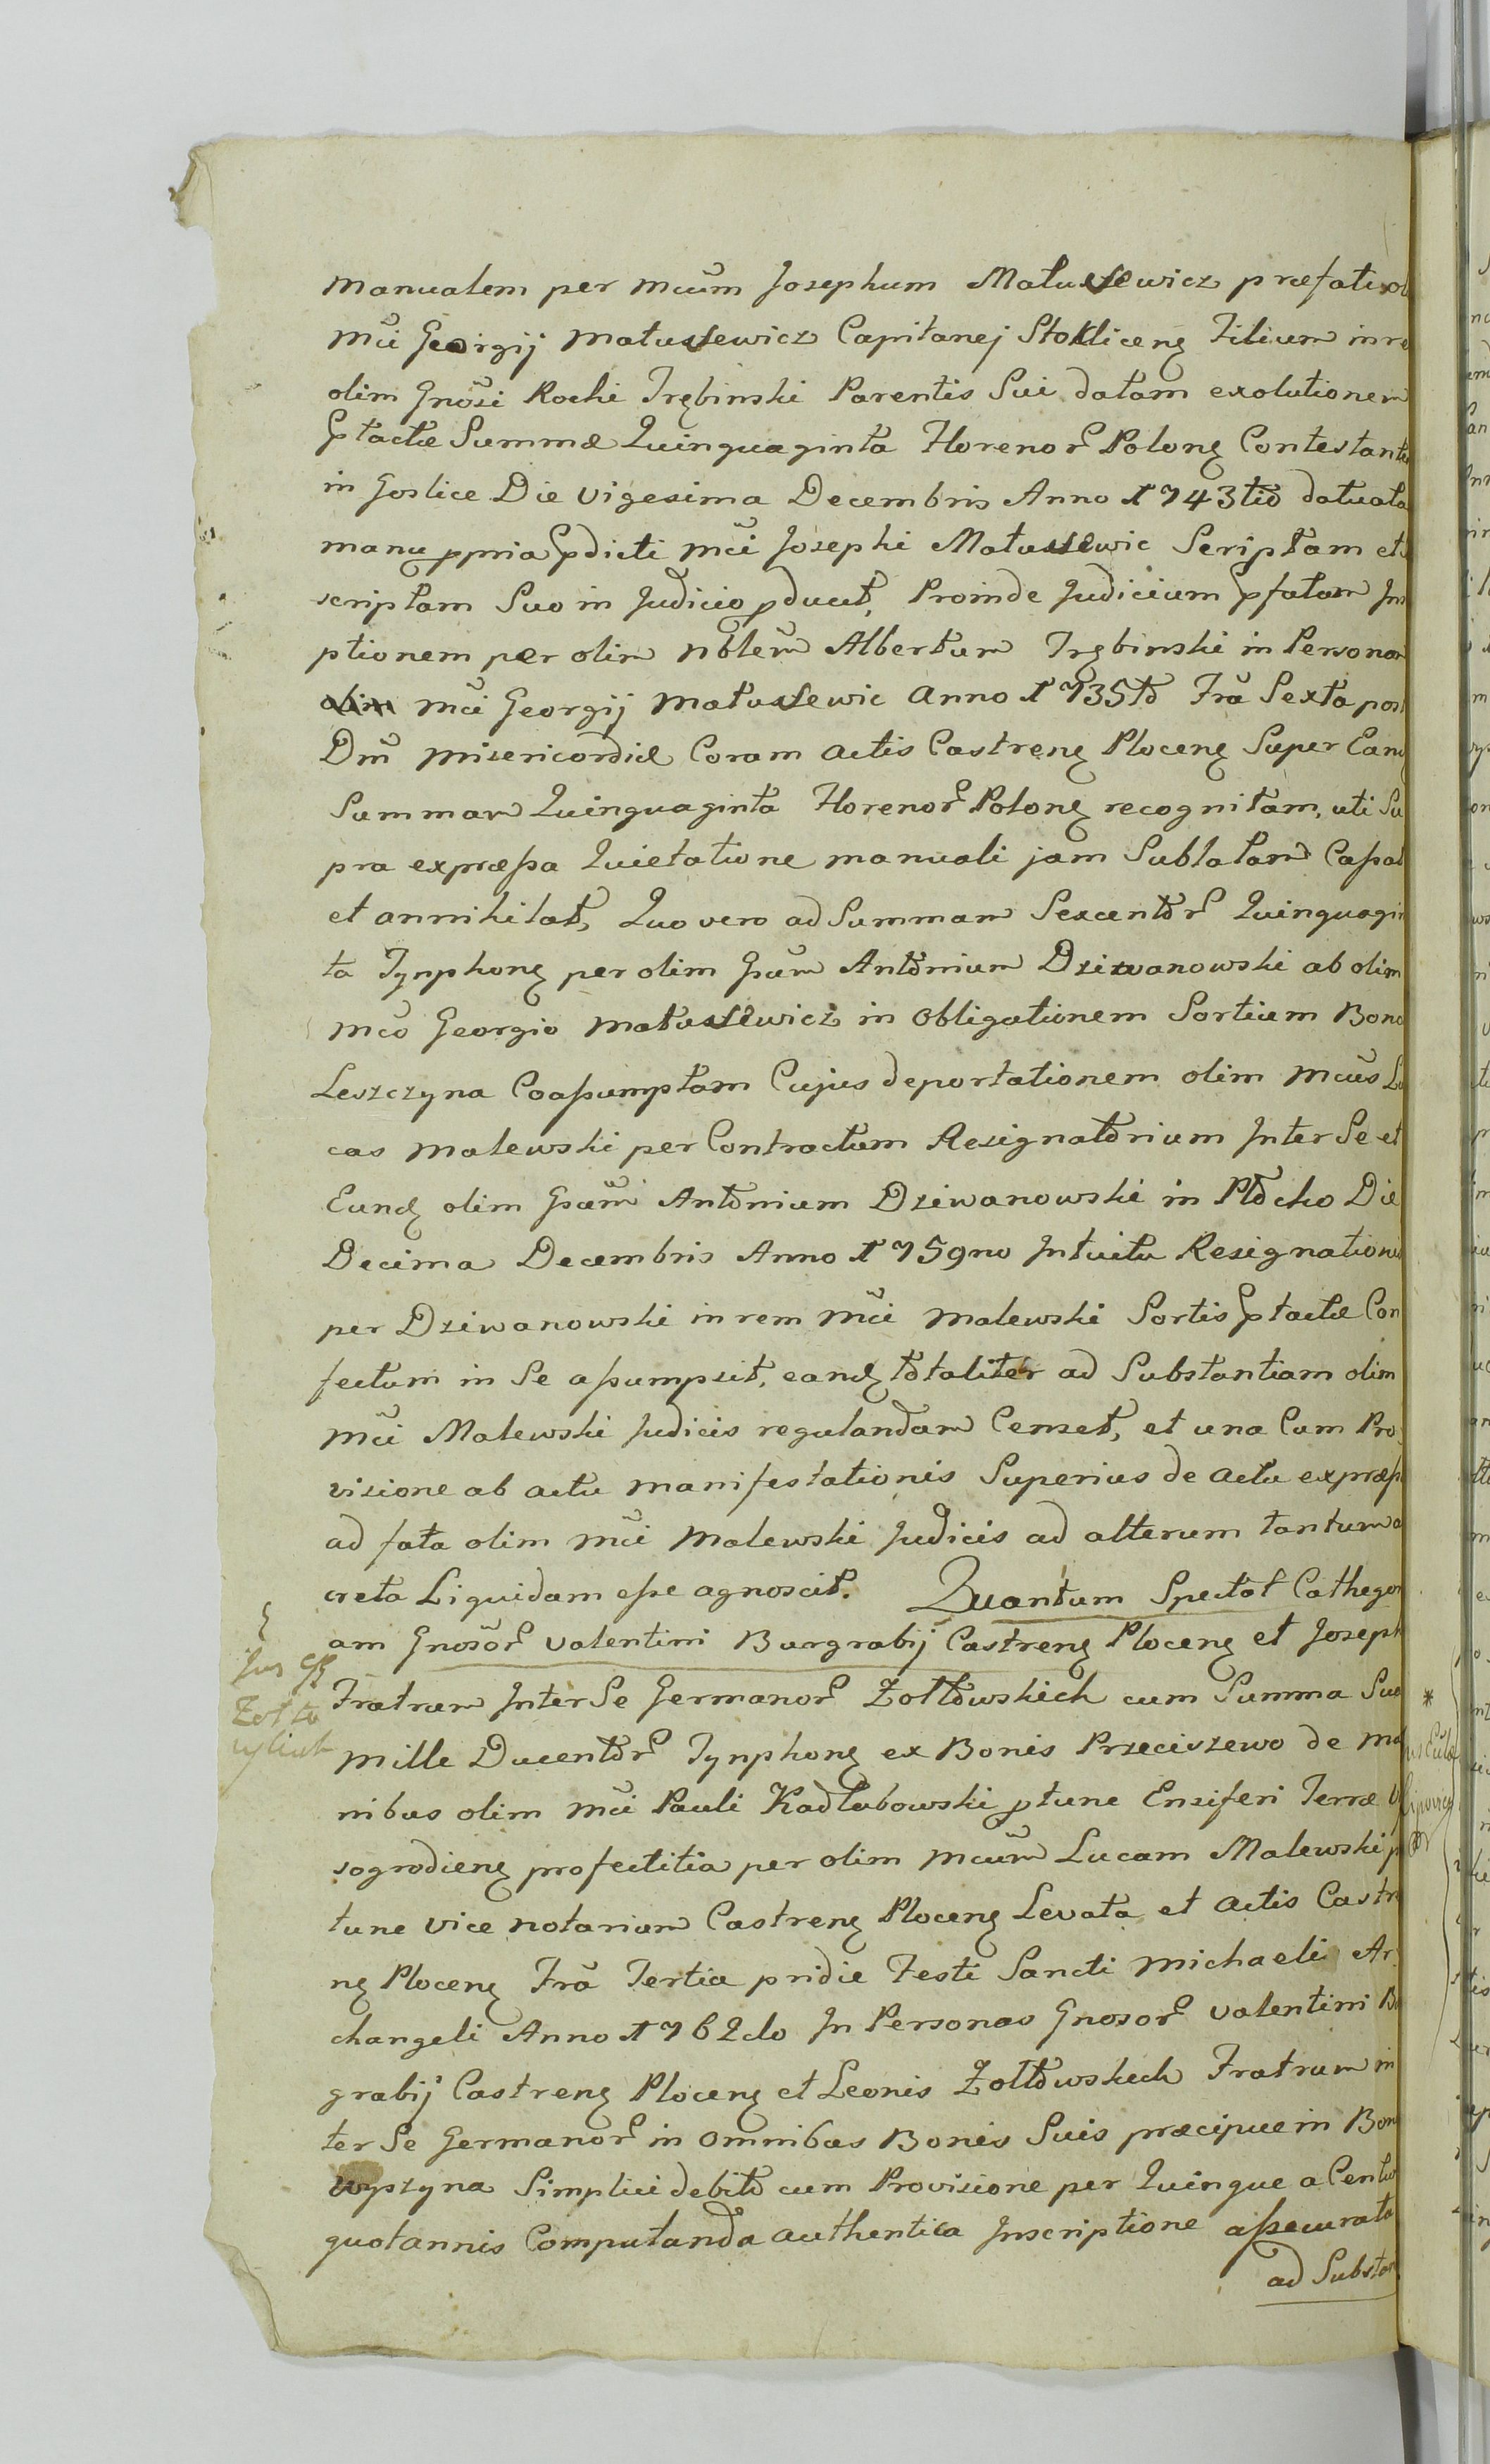 manualem per Mcūm Josephum Matuszewicz præfati ol
Mci Georgij Matuszewicz Capitanej Stokliceng Filium in re
olim Gnōsi Rochi Trębinski Parentis Sui datam exolutionem
Ptactæ Summæ Quinquaginta Florenor Polong Contestante
in Goslice Die Vigesima Decembris Anno 1743tio datuata
manu ppria Pdicti Mci Josephi Matuszewic Scriptam et
scriptam Suo in Judicio pducit, Proinde Judicium Pfatam In
ptionem per olim Nblem Albertum Trębinski in Personam
olim Mci Georgij Matuszewic Anno 1735to Fra Sexta post
Dm Misericordiæ Coram Actis Castreng Ploceng Super Eand
Summam Quinquaginta Florenor Polong recognitam, uti Su
pra expressa Quietatione manuali jam Sublatam Cassat
et annihilat, Quo vero ad Summam Sexcentor Quinquagin
ta Tynphong per olim Gsum Antonium Dziwanowski ab olim
Mco Georgio Matuszewicz in Obligationem Sortium Bono
Leszczyna Coassumptam Cujus deportationem olim Mcus Lu
cas Malewski per Contractum Resignatorium Inter Se et
Eund olim Gsum Antonium Dziwanowski in Plocko Die
Decima Decembris Anno 1759no Intuitu Resignationis
per Dziwanowski in rem Mci Malewski Sortis Ptactæ Con
fectum in Se assumpsit, eand totaliter ad Substantiam olim
Mci Malewski Judicis regulandam Censet, et una Cum Pro
visione ab actu manifestationis Superius de actu express
ad fata olim Mci Malewski Judicis ad alterum tantum a
creta Liquidam esse agnoscit. Quantum Spectat Cathegor
am Gnosor Valentini Burgrabij Castreng Ploceng et Joseph
Fratrum Inter Se Germanor Zołtowskich cum Summa Sua
Mille Ducentor Tynphong ex Bonis Przeciszewo de Ma
nibus olim Mci Pauli Kadlubowski ptunc Ensiferi Terræ W
sogrodieng profectitia per olim Mcum Lucam Malewski p
tunc Vice Notarium Castreng Ploceng Levata et Actis Castre
ng Ploceng Fra Tertia pridie Festi Sancti Michaelis Ar
changeli Anno 1762do In Personas Gnosor Valentini Bu
grabij Castreng Ploceng et Leonis Zołtowskich Fratrum in
ter Se Germanor in Omnibus Bonis Suis præcipue in Bon
Wyszyna Simplici debito cum Provisione per Quinque a Centu
quotannis Computanda authentica Inscriptione assecurata
ad Substan